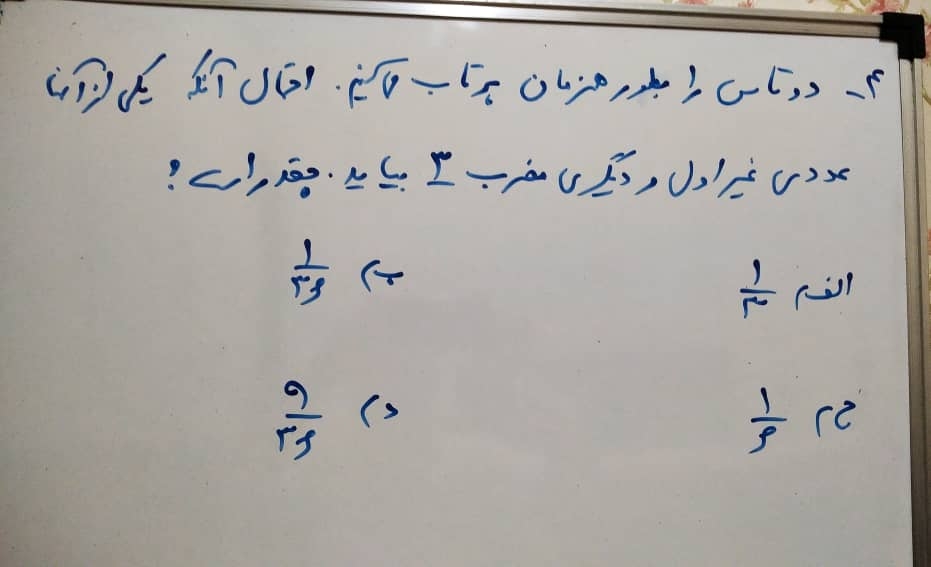 ۴_ دو تاس را بطور همزمان پرتاب می‌کنیم. احتمال آنکه یکی از آنها
عددی غیر اول و دیگری مضرب ۳ بیاید. چقدر است؟
الف) ۱/۳ ب) ۱/۳۶
ج) ۱/۶ د) ۹/۳۶